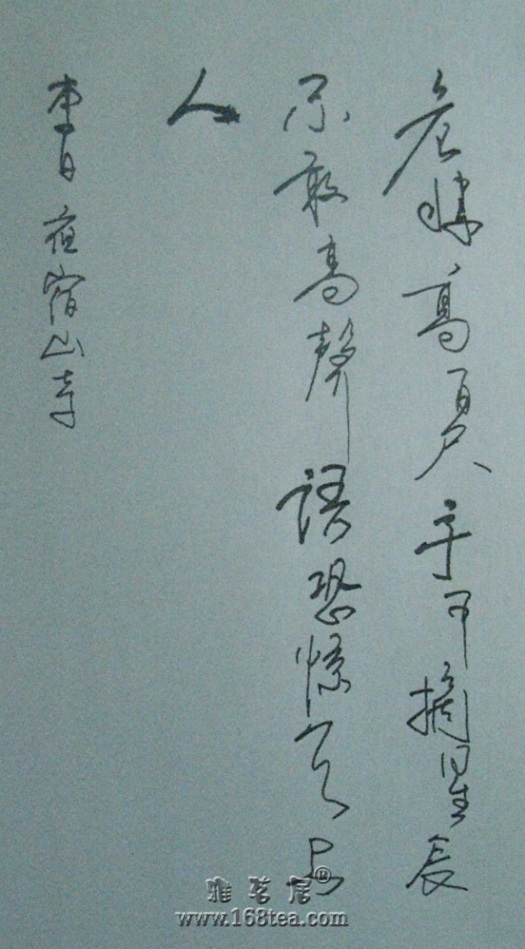 危樓高百尺手可摘星辰
不敢高聲語恐驚天上
人
李白夜宿山寺
雅茗居®
www.168tea.com